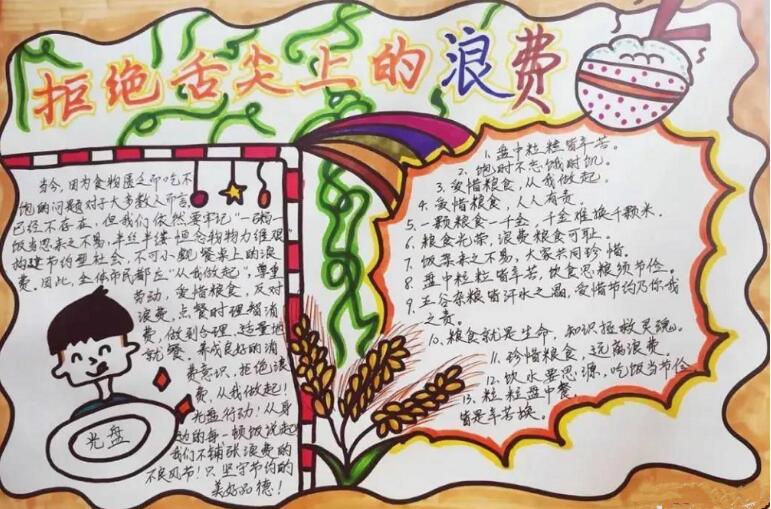 拒绝舌尖上的浪费
当今,因为食物匮乏而吃不
饱的问题对于大多数人而言,
已经不存在,但我们依然要牢记“一粥一
饭当思来之不易,半丝半缕恒念物力维艰”
构建节约型社会,不可小觑餐桌上的浪
费。因此,全体市民都应“从我做起”,尊重
劳动,爱惜粮食,反对
浪费,点餐时理智消
费,做到合理、适量地
就餐,养成良好的消
费意识,拒绝浪
费,从我做起!
光盘行动!从身
边的每一顿饭说起
我们不铺张浪费的
不良风节!只坚守节约的
美好品德!
光盘
1. 盘中粒粒皆辛苦。
2. 饱时不忘饿时饥。
3. 爱惜粮食,从我做起。
4. 爱惜粮食,人人有责。
5. 一颗粮食一千金,千金难换千颗米。
6. 粮食光荣,浪费粮食可耻。
7. 饭菜来之不易,大家共同珍惜。
8. 盘中粒粒皆辛苦,饮食思粮须节俭。
9. 五谷杂粮皆汗水之晶,爱惜节约乃你我
之责。
10. 粮食就是生命,知识拯救灵魂。
11. 珍惜粮食,远离浪费。
12. 饮水要思源,吃饭当节俭
13. 粒粒盘中餐,
皆是辛苦换。